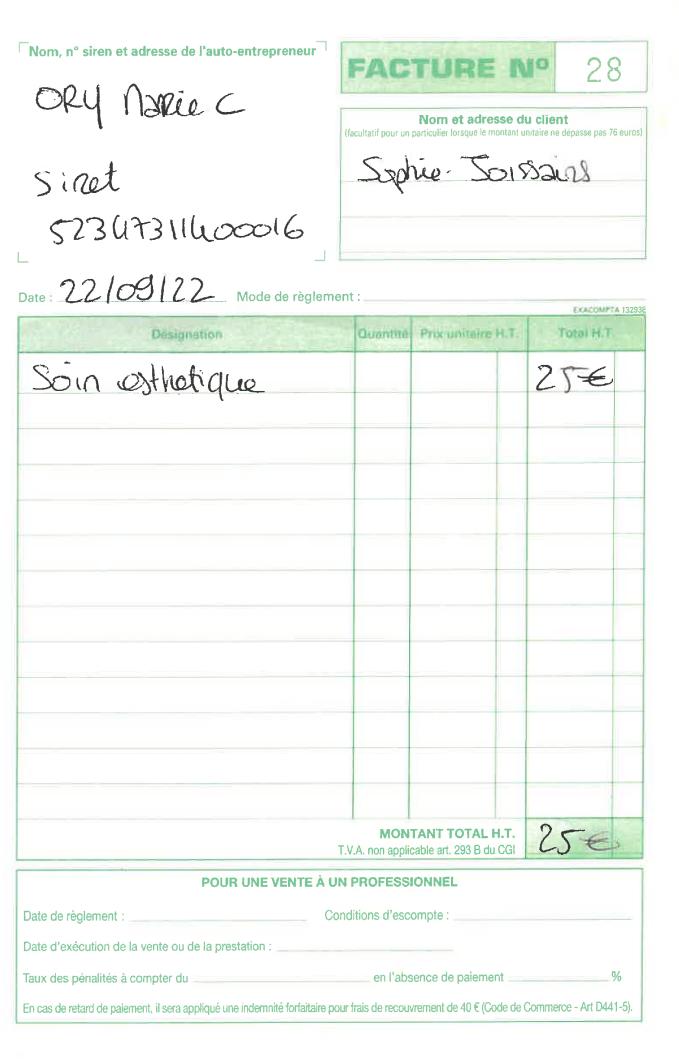 Nom, n° siren et adresse de l'auto-entrepreneur
ORY Marie C
Siret
52347311400016
FACTURE N° 28
Nom et adresse du client
(facultatif pour un particulier lorsque le montant unitaire ne dépasse pas 76 euros)
Sophie Joissains
Date : 22/09/22 Mode de règlement :
EXACOMPTA 13293E
Désignation Quantité Prix unitaire H.T. Total H.T.
Soin esthetique 25€
MONTANT TOTAL H.T. 25€
T.V.A. non applicable art. 293 B du CGI
POUR UNE VENTE À UN PROFESSIONNEL
Date de règlement : Conditions d'escompte :
Date d'exécution de la vente ou de la prestation :
Taux des pénalités à compter du en l'absence de paiement %
En cas de retard de paiement, il sera appliqué une indemnité forfaitaire pour frais de recouvrement de 40 € (Code de Commerce - Art D441-5).